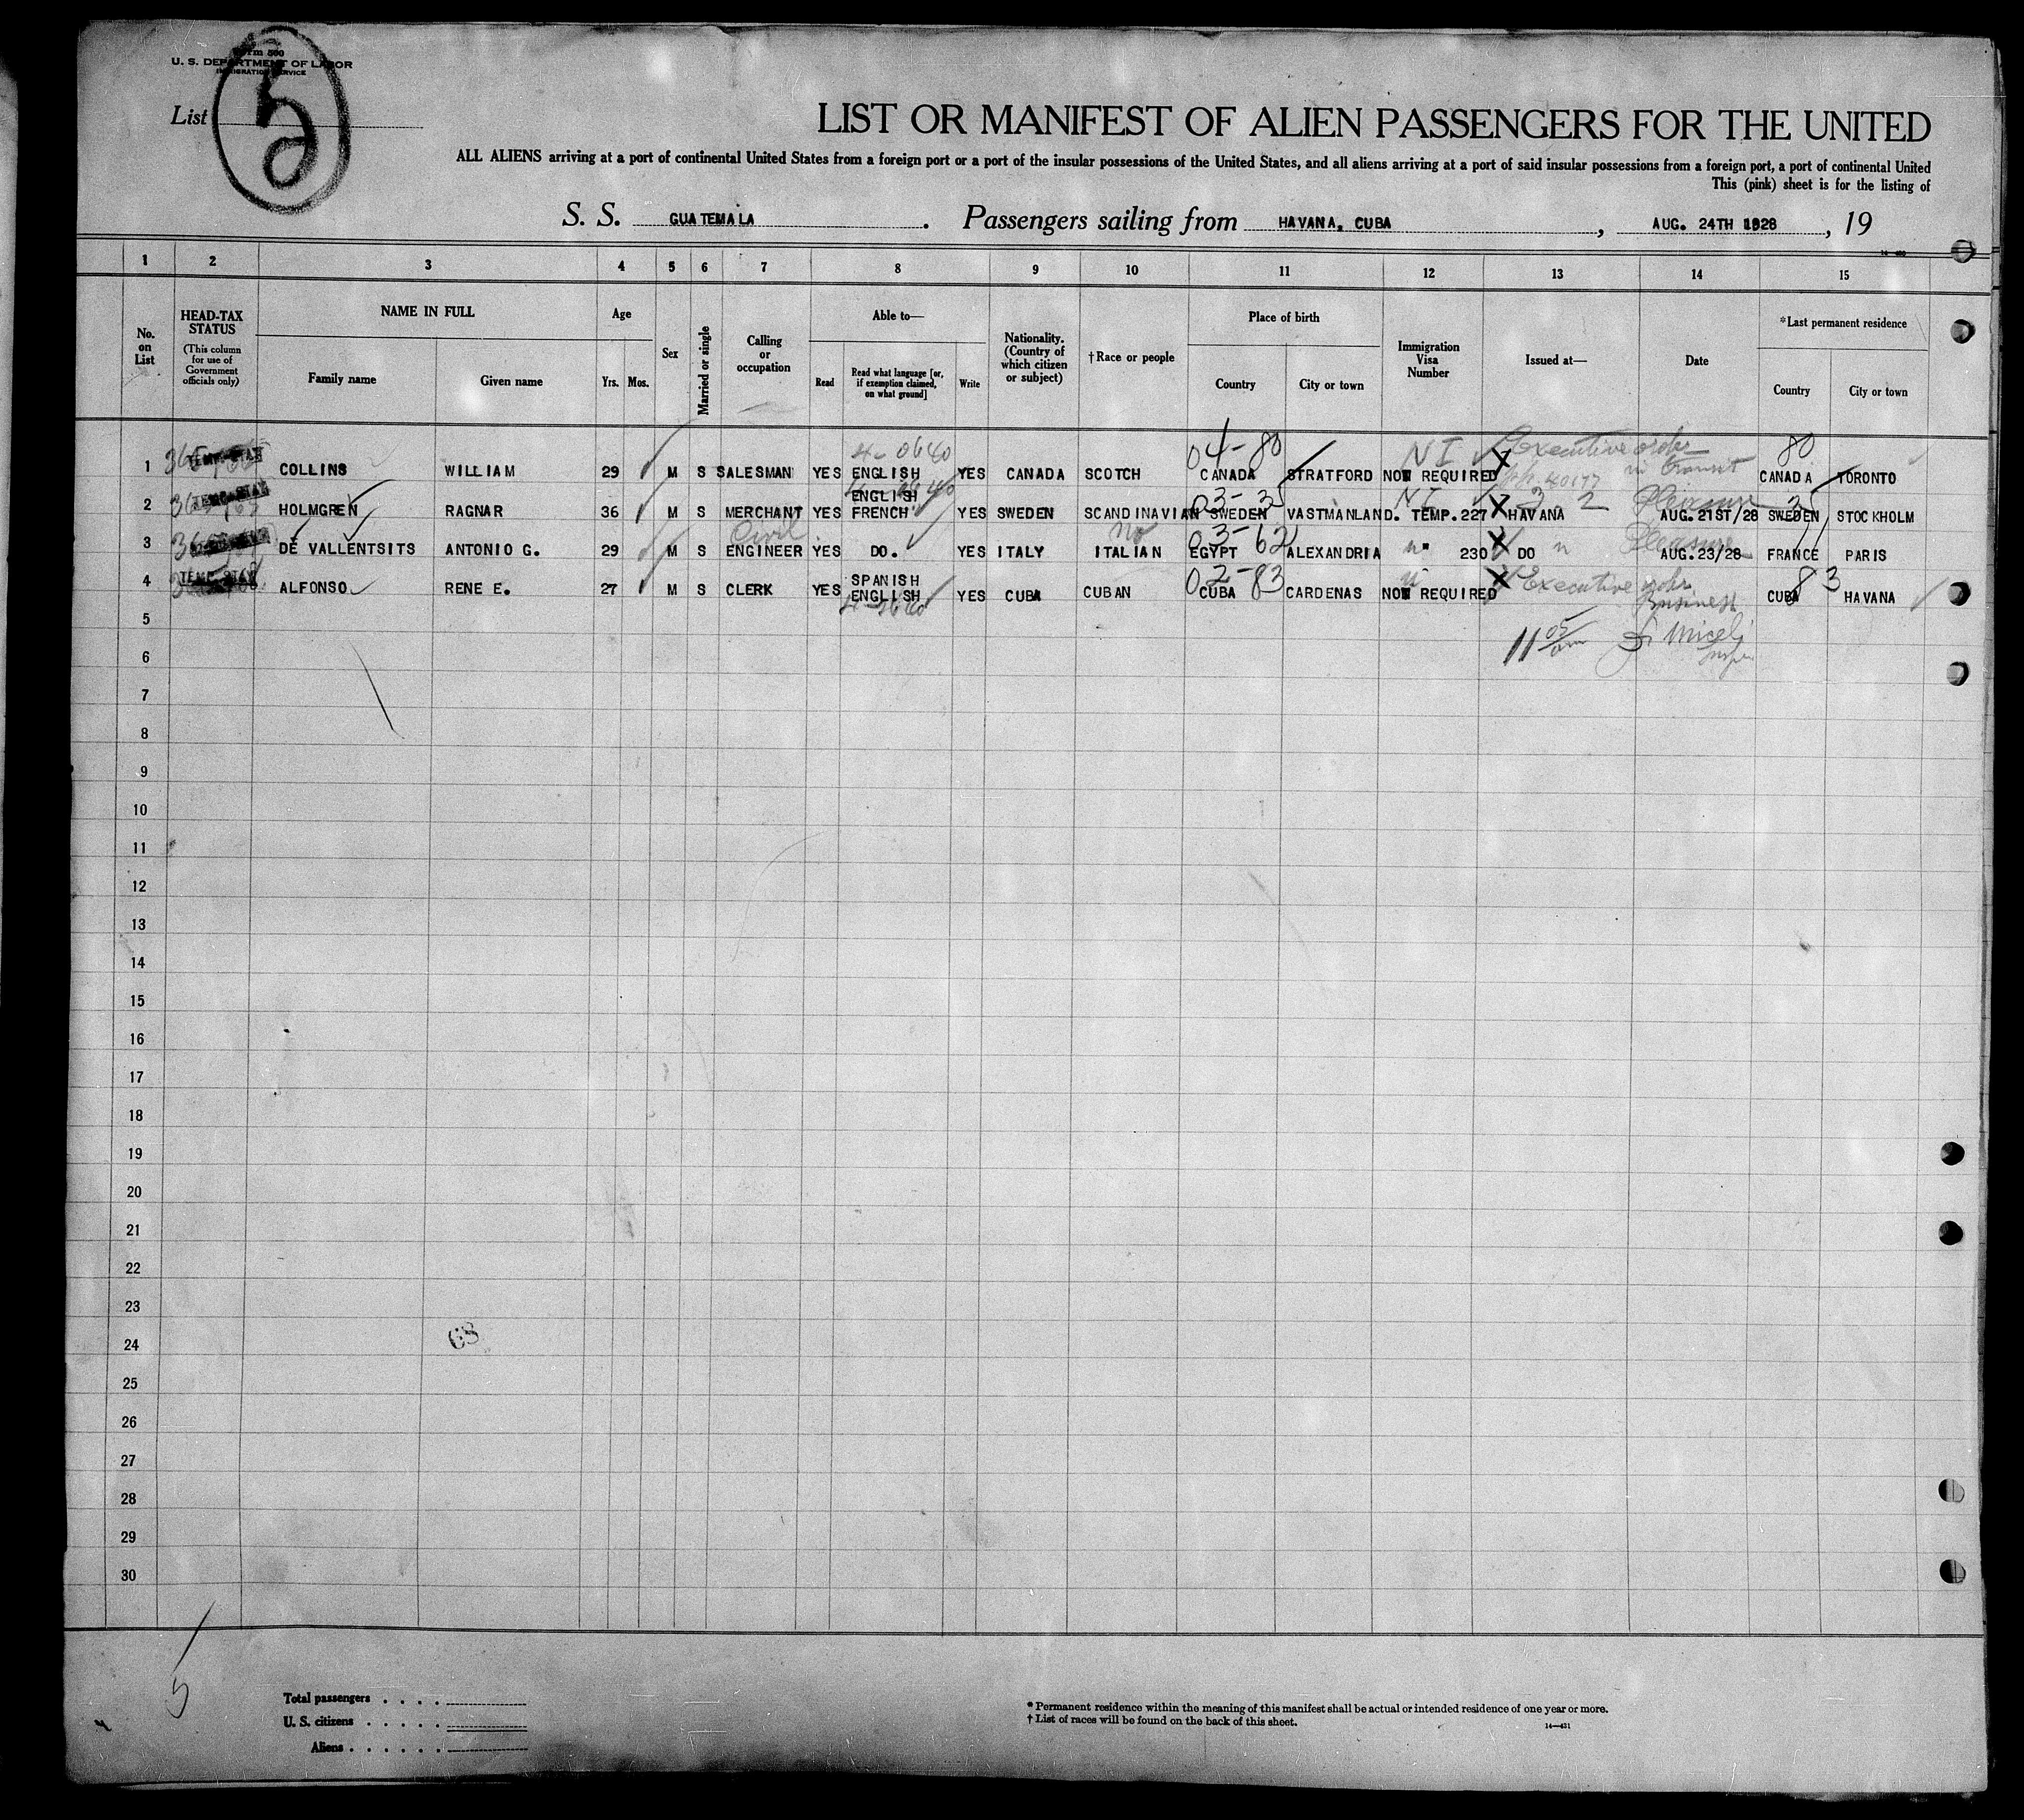 Form 500
U. S. DEPARTMENT OF LABOR
IMMIGRATION SERVICE
List 5
LIST OR MANIFEST OF ALIEN PASSENGERS FOR THE UNITED
ALL ALIENS arriving at a port of continental United States from a foreign port or a port of the insular possessions of the United States, and all aliens arriving at a port of said insular possessions from a foreign port, a port of continental United
This (pink) sheet is for the listing of
S. S. GUATEMALA. Passengers sailing from HAVANA, CUBA, AUG. 24TH 1928, 19
1 2 3 4 5 6 7 8 9 10 11 12 13 14 15
No. on List
HEAD-TAX STATUS (This column for use of Government officials only)
NAME IN FULL
Family name Given name
Age
Yrs. Mos.
Sex
Married or single
Calling or occupation
Able to—
Read Read what language [or, if exemption claimed, on what ground] Write
Nationality. (Country of which citizen or subject)
†Race or people
Place of birth
Country City or town
Immigration Visa Number
Issued at—
Date
*Last permanent residence
Country City or town
4-0640 04-80 NI Executive order in transit 80
1 TEMP-STAY COLLINS WILLIAM 29 M S SALESMAN YES ENGLISH YES CANADA SCOTCH CANADA STRATFORD NOT REQUIRED CANADA TORONTO
03-35 NI 3-2 Pleasure
2 TEMP-STAY HOLMGREN RAGNAR 36 M S MERCHANT YES ENGLISH FRENCH YES SWEDEN SCANDINAVIAN SWEDEN VASTMANLAND. TEMP. 227 HAVANA AUG. 21ST/28 SWEDEN STOCKHOLM
Civil no 03-62 Pleasure
3 DE VALLENTSITS ANTONIO G. 29 M S ENGINEER YES DO. YES ITALY ITALIAN EGYPT ALEXANDRIA " 230 DO AUG. 23/28 FRANCE PARIS
02-83 Executive order Business 83
4 TEMP-STAY ALFONSO RENE E. 27 M S CLERK YES SPANISH ENGLISH YES CUBA CUBAN CUBA CARDENAS NOT REQUIRED CUBA HAVANA
5
11 05 am Miceli
6
7
8
9
10
11
12
13
14
15
16
17
18
19
20
21
22
23
24
68
25
26
27
28
29
30
5
Total passengers . . . .
U. S. citizens . . . . .
Aliens . . . . . .
* Permanent residence within the meaning of this manifest shall be actual or intended residence of one year or more.
† List of races will be found on the back of this sheet.
14—431